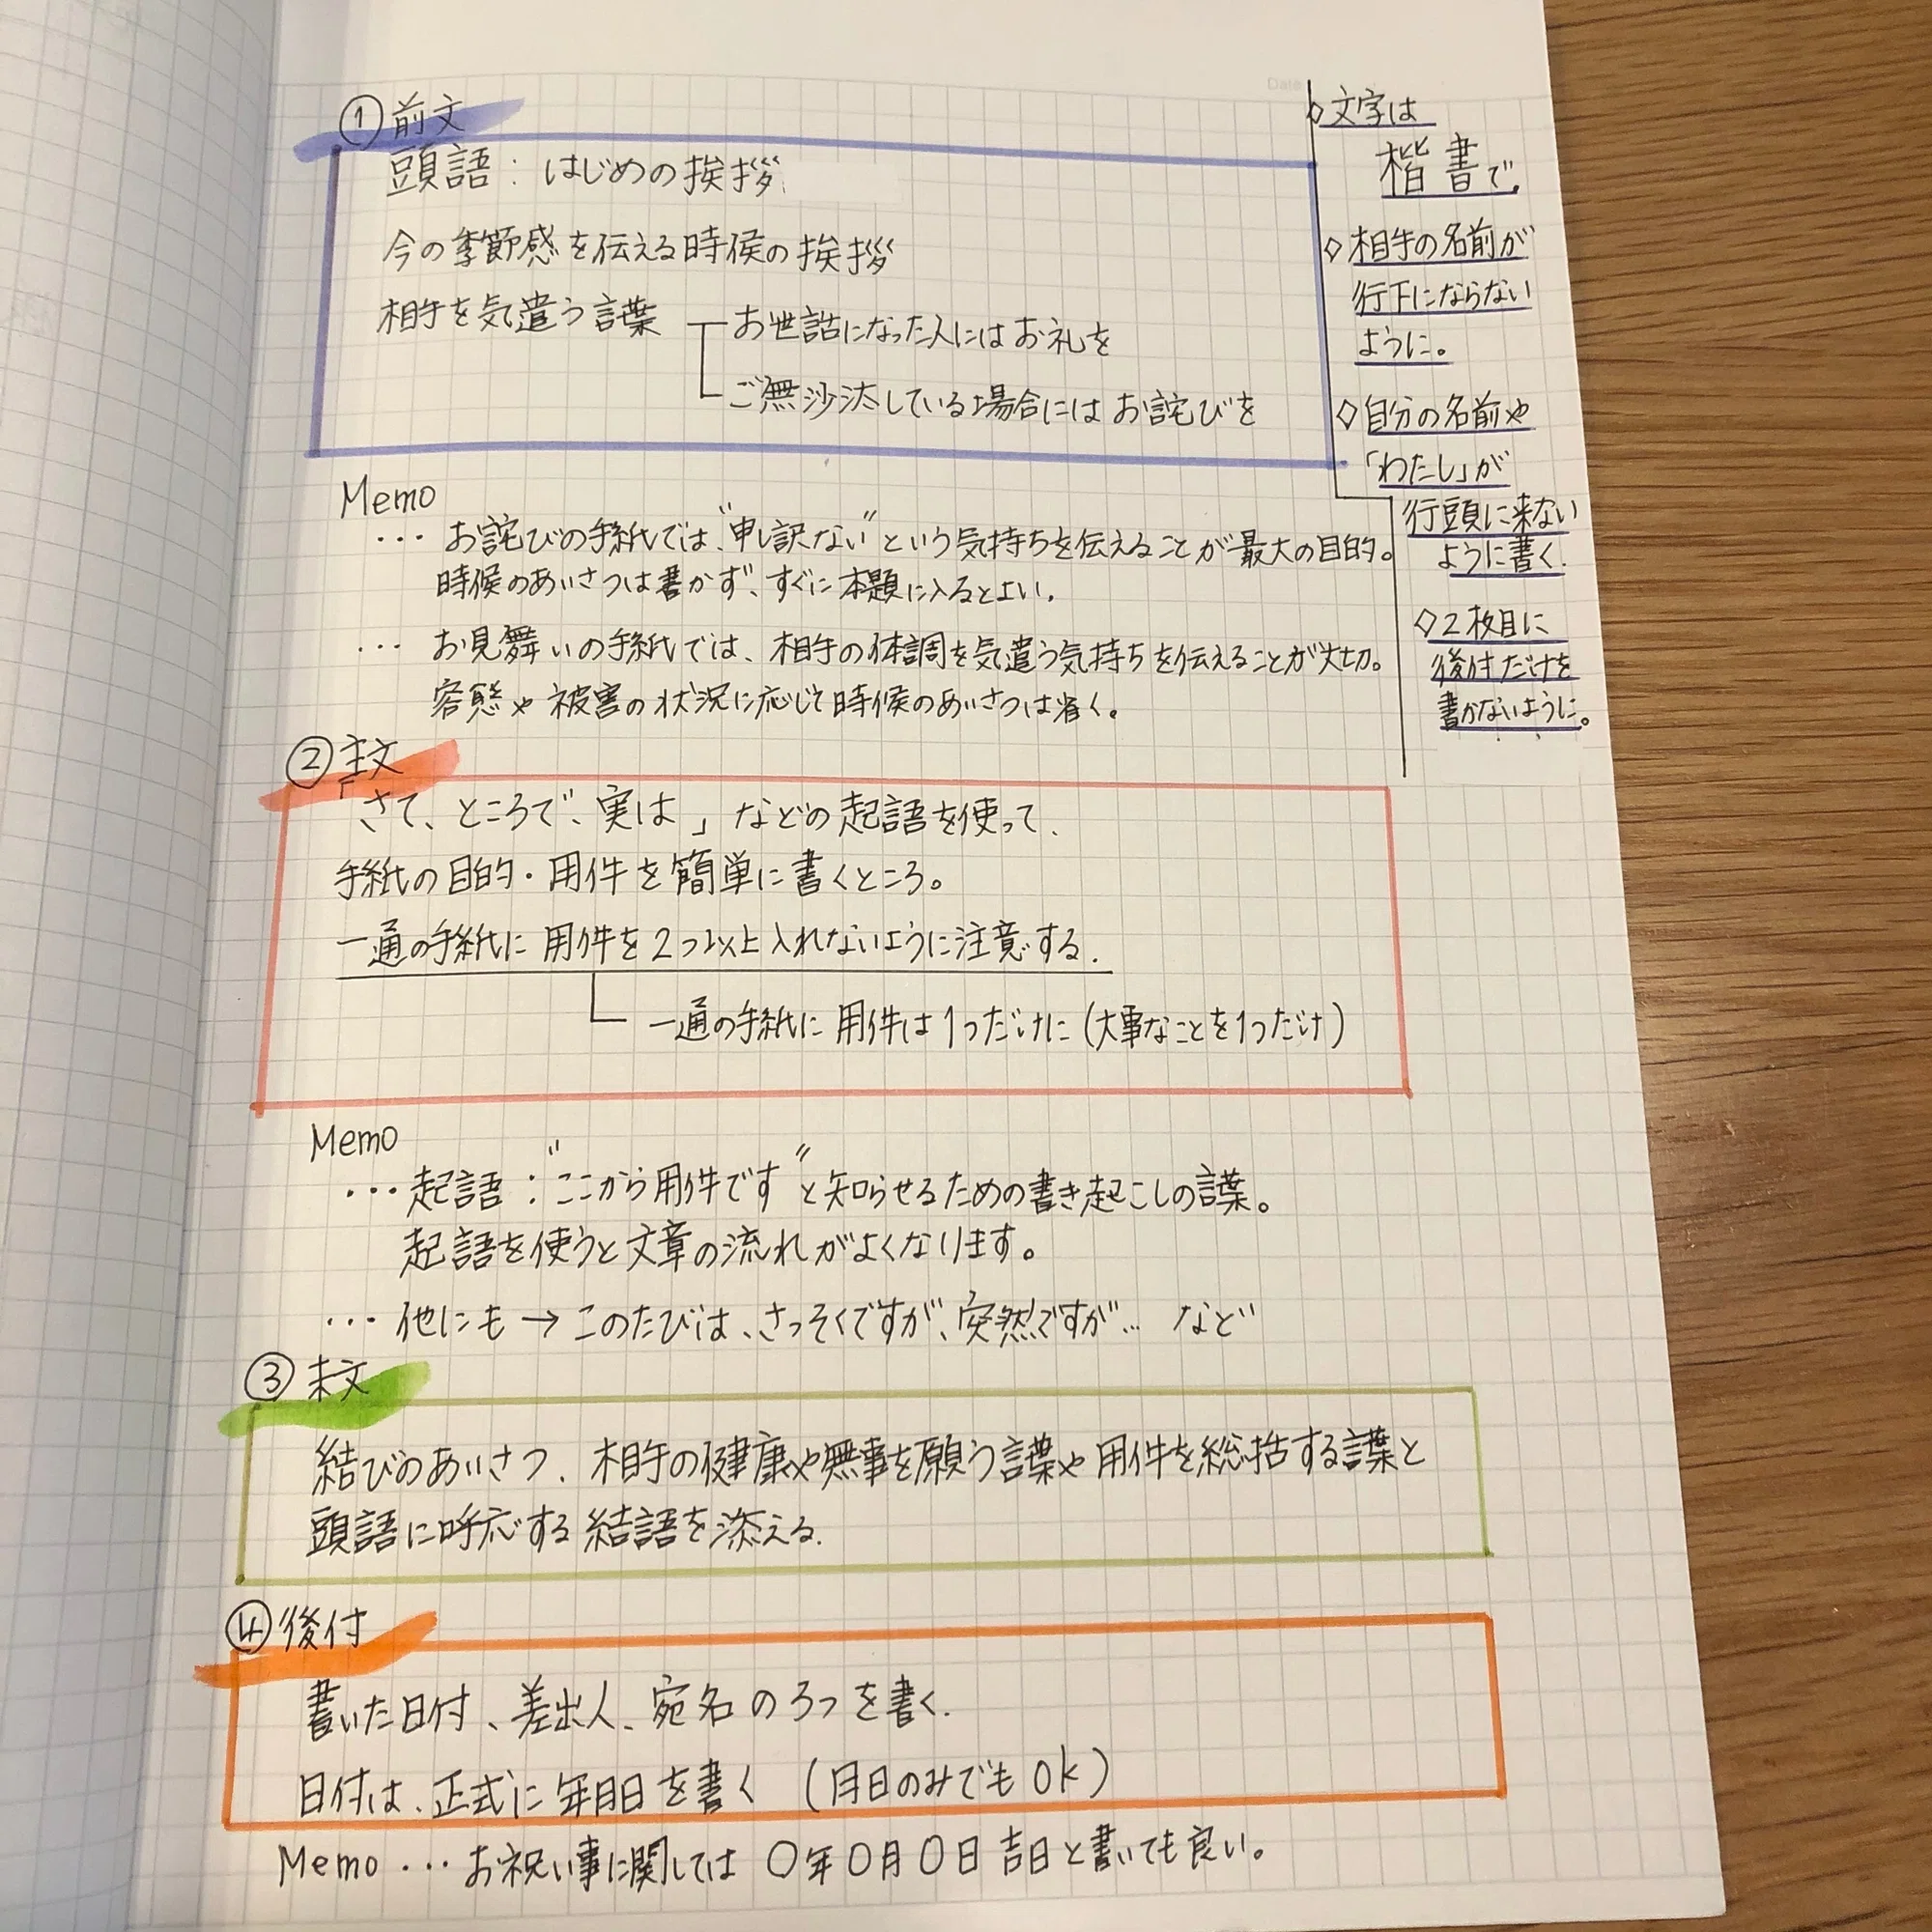 ① 前文
頭語：はじめの挨拶
今の季節感を伝える時候の挨拶
相手を気遣う言葉
お世話になった人にはお礼を
ご無沙汰している場合にはお詫びを
Memo
… お詫びの手紙では、"申し訳ない"という気持ちを伝えることが最大の目的。
時候のあいさつは書かず、すぐに本題に入るとよい.
… お見舞いの手紙では、相手の体調を気遣う気持ちを伝えることが大切。
容態や被害の状況に応じて時候のあいさつは省く。
◇文字は
楷書で.
◇相手の名前が
行下にならない
ように。
◇自分の名前や
「わたし」が
行頭に来ない
ように書く.
◇2枚目に
後付だけを
書かないように。
② 主文
「さて、ところで、実は」などの起語を使って、
手紙の目的・用件を簡単に書くところ。
一通の手紙に用件を2つ以上入れないように注意する.
一通の手紙に用件は1つだけに(大事なことを1つだけ)
Memo
… 起語："ここから用件です"と知らせるための書き起こしの言葉。
起語を使うと文章の流れがよくなります。
… 他にも → このたびは、さっそくですが、突然ですが… など
③ 末文
結びのあいさつ、相手の健康や無事を願う言葉や用件を総括する言葉と
頭語に呼応する結語を添える.
④ 後付
書いた日付、差出人、宛名の3つを書く.
日付は、正式に年月日を書く (月日のみでもOK)
Memo … お祝い事に関しては 〇年〇月〇日 吉日と書いても良い。
Date